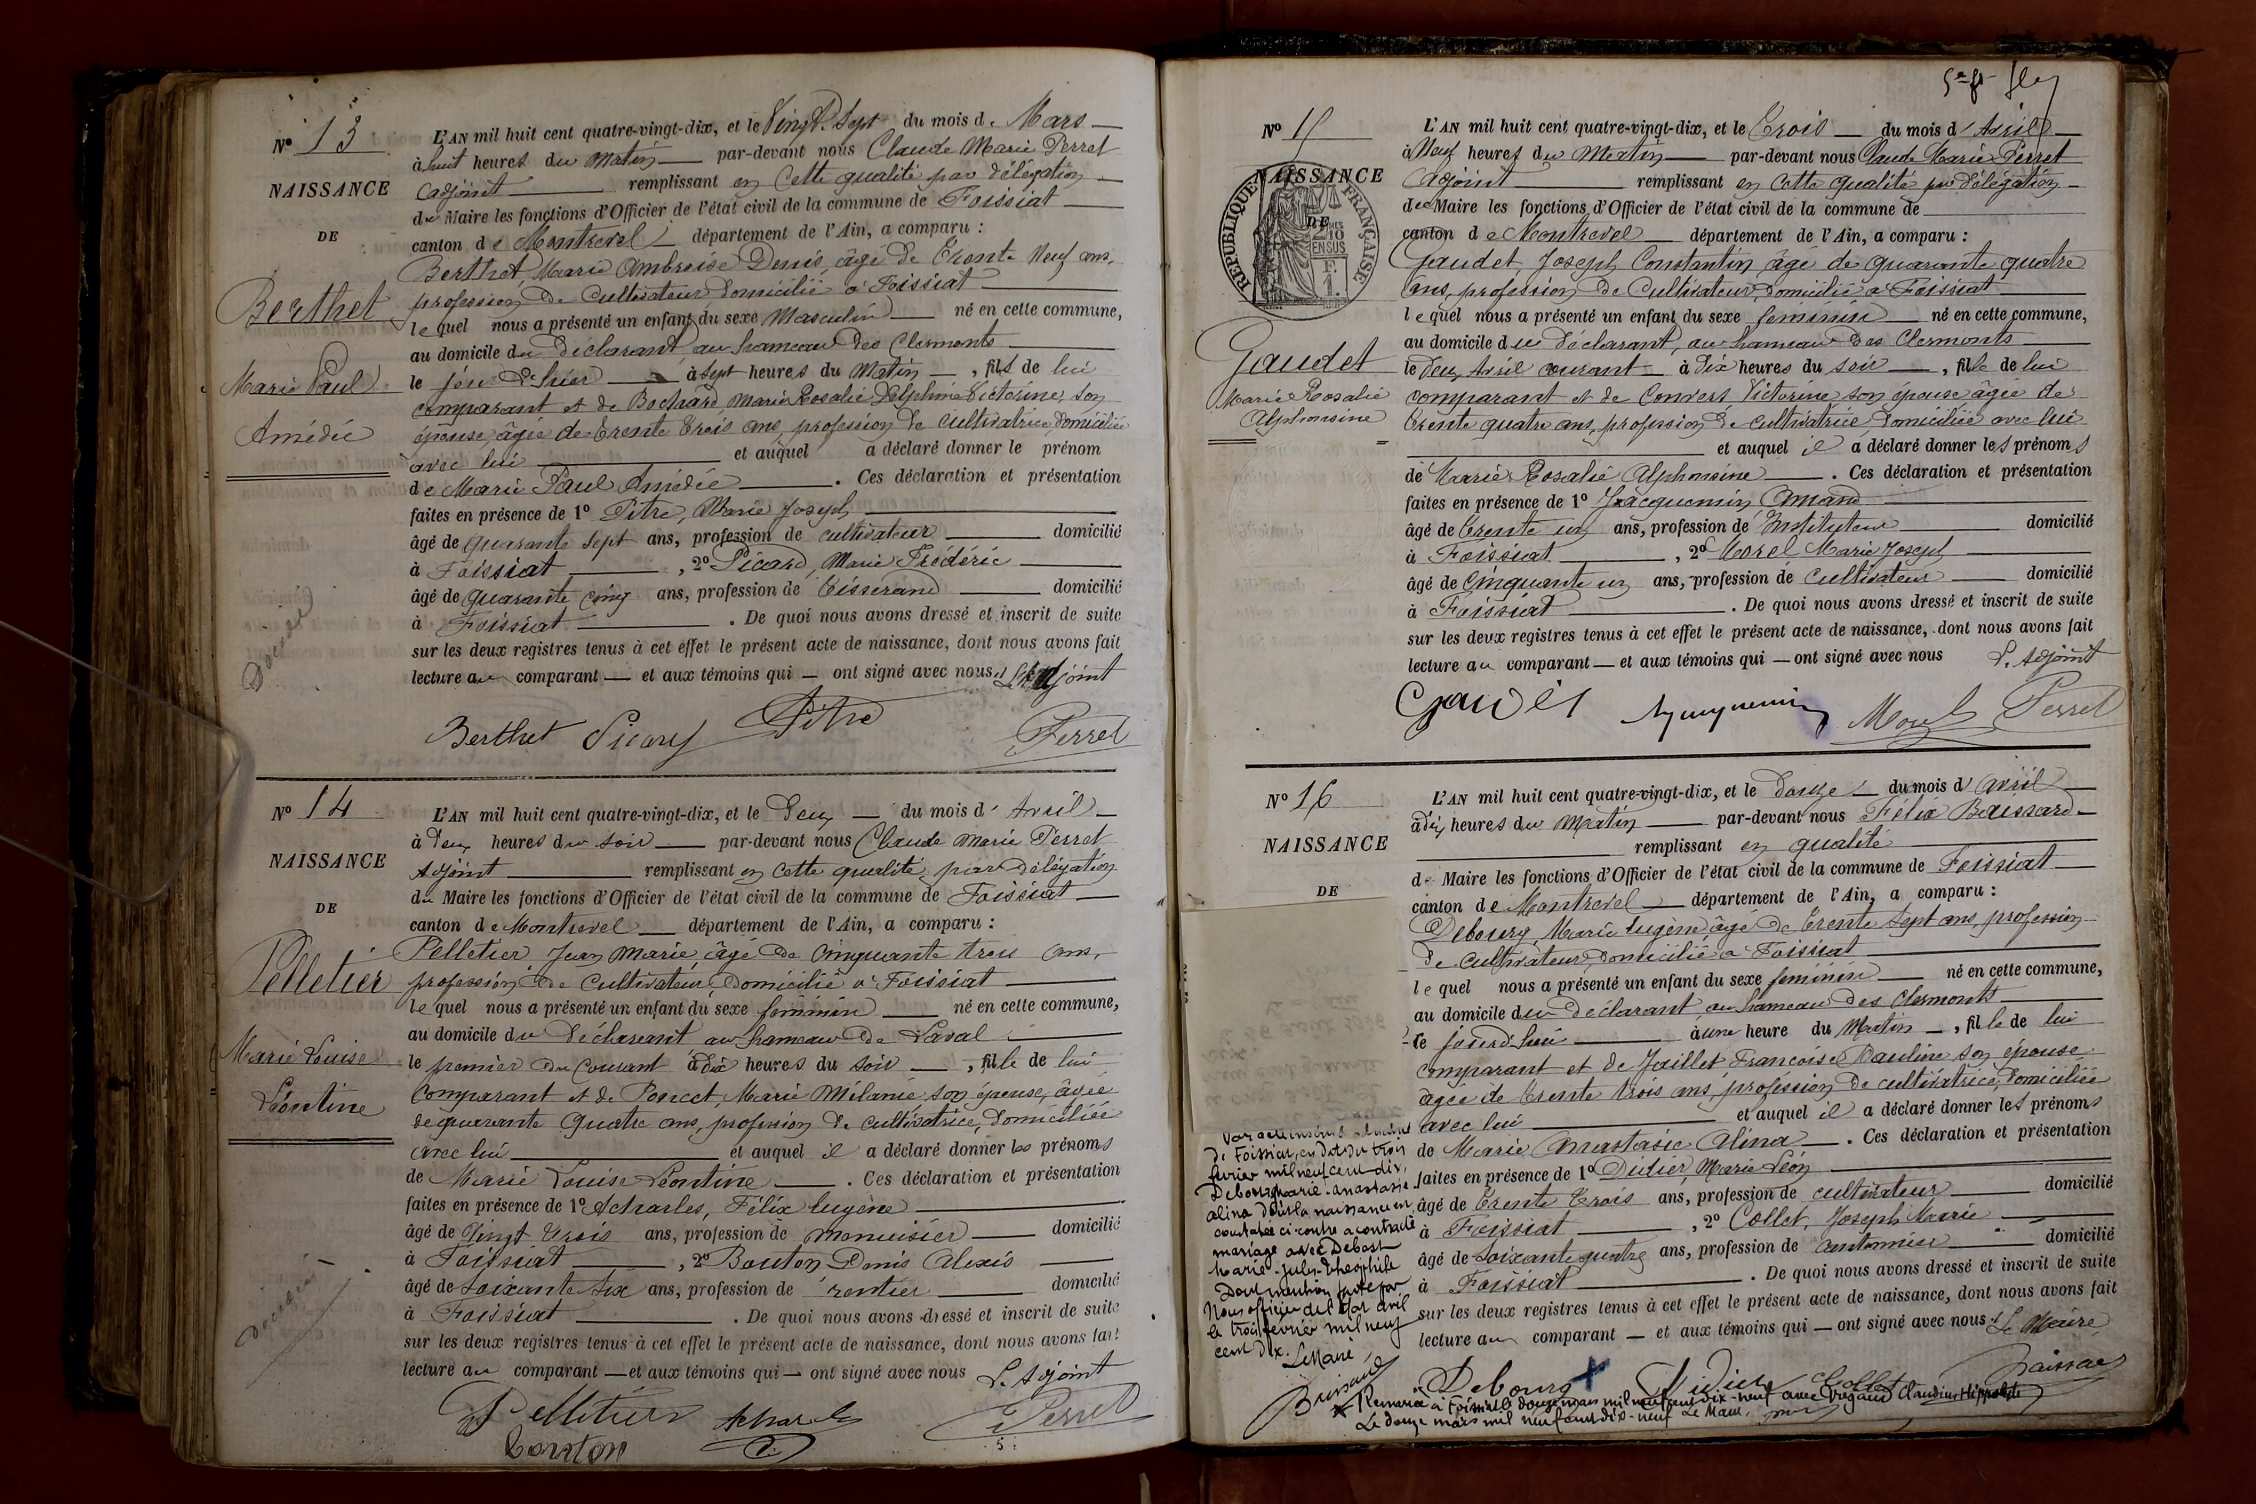 Nº 13
NAISSANCE
DE
Berthet
Marie Paul
Amédée
L'AN mil huit cent quatre-vingt-dix, et le Vingt-Sept du mois de Mars
à huit heures du Matin par-devant nous Claude Marie Perret
adjoint remplissant en Cette qualité par délégation
du Maire les fonctions d'Officier de l'état civil de la commune de Foissiat
canton de Montrevel département de l'Ain, a comparu :
Berthet Marie Ambroise Denis, âgé de Trente Neuf ans,
profession de Cultivateur domicilié à Foissiat
lequel nous a présenté un enfant du sexe Masculin né en cette commune,
au domicile du Déclarant, au hameau des Clermonts
le jour d'hier à sept heures du Matin, fils de lui
comparant et de Bochard, Marie Rosalie Delphine Victorine, son
épouse, âgée de Trente Trois ans, profession de cultivatrice, domiciliée
avec lui et auquel a déclaré donner le prénom
de Marie Paul Amédée. Ces déclaration et présentation
faites en présence de 1º Pitre, Marie Joseph
âgé de quarante sept ans, profession de cultivateur domicilié
à Foissiat, 2º Picard, Marie Frédéric
âgé de quarante cinq ans, profession de Tisserand domicilié
à Foissiat. De quoi nous avons dressé et inscrit de suite
sur les deux registres tenus à cet effet le présent acte de naissance, dont nous avons fait
lecture au comparant et aux témoins qui ont signé avec nous. L'Adjoint
Berthet Picard Pitre Perret
Nº 14
NAISSANCE
DE
Pelletier
Marie Louise
Léontine
L'AN mil huit cent quatre-vingt-dix, et le Deux du mois d'Avril
à Deux heures du soir par-devant nous Claude Marie Perret
Adjoint remplissant en Cette qualité par délégation
du Maire les fonctions d'Officier de l'état civil de la commune de Foissiat
canton de Montrevel département de l'Ain, a comparu :
Pelletier Jean Marie, âgé de Cinquante trois ans,
profession de Cultivateur, Domicilié à Foissiat
lequel nous a présenté un enfant du sexe féminin né en cette commune,
au domicile du Déclarant au hameau de Laval
le premier du Courant à Dix heures du Soir, fille de lui
Comparant et de Poncet, Marie Mélanie son épouse, âgée
de quarante Quatre ans, profession de cultivatrice, Domiciliée
avec lui et auquel il a déclaré donner les prénoms
de Marie Louise Léontine. Ces déclaration et présentation
faites en présence de 1º Acharles, Félix Eugène
âgé de Vingt Trois ans, profession de menuisier domicilié
à Foissiat, 2º Bouton Denis Alexis
âgé de Soixante Six ans, profession de rentier domicilié
à Foissiat. De quoi nous avons dressé et inscrit de suite
sur les deux registres tenus à cet effet le présent acte de naissance, dont nous avons fait
lecture au comparant et aux témoins qui ont signé avec nous L'Adjoint
Pelletier Acharles Perret
Bouton
5
Nº 15
NAISSANCE
DE
RÉPUBLIQUE FRANÇAISE
Gaudet
Marie Rosalie
Alphonsine
L'AN mil huit cent quatre-vingt-dix, et le Trois du mois d'Avril
à Neuf heures du Matin par-devant nous Claude Marie Perret
Adjoint remplissant en Cette qualité par Délégation
du Maire les fonctions d'Officier de l'état civil de la commune de
canton de Montrevel département de l'Ain, a comparu :
Gaudet, Joseph Constantin, âgé de Quarante quatre
ans, profession de Cultivateur, domicilié à Foissiat
lequel nous a présenté un enfant du sexe féminin né en cette commune,
au domicile du Déclarant, au hameau des Clermonts
le Deux Avril courant à Dix heures du soir, fille de lui
comparant et de Convert Victorine son épouse âgée de
Trente quatre ans, profession de cultivatrice domiciliée avec lui
et auquel il a déclaré donner les prénoms
de Marie Rosalie Alphonsine. Ces déclaration et présentation
faites en présence de 1º Jacquemin, Amand
âgé de Trente un ans, profession de Instituteur domicilié
à Foissiat, 2º Morel Marie Joseph
âgé de Cinquante un ans, profession de Cultivateur domicilié
à Foissiat. De quoi nous avons dressé et inscrit de suite
sur les deux registres tenus à cet effet le présent acte de naissance, dont nous avons fait
lecture au comparant et aux témoins qui ont signé avec nous L'Adjoint
Gaudet Jacquemin Morel Perret
Nº 16
NAISSANCE
DE
L'AN mil huit cent quatre-vingt-dix, et le Douze du mois d'Avril
à dix heures du Matin par-devant nous Félix Baissard
remplissant en qualité
de Maire les fonctions d'Officier de l'état civil de la commune de Foissiat
canton de Montrevel département de l'Ain, a comparu :
Debourg, Marie Eugène âgé de Trente Sept ans, profession
de cultivateur, domicilié à Foissiat
lequel nous a présenté un enfant du sexe féminin né en cette commune,
au domicile du Déclarant, au hameau des Clermonts
le jourd'hui à une heure du Matin, fille de lui
comparant et de Jaillet Françoise Pauline son épouse
âgée de Trente trois ans, profession de cultivatrice, domiciliée
avec lui et auquel il a déclaré donner les prénoms
de Marie Anastasie Alina. Ces déclaration et présentation
faites en présence de 1º Didier, Marie Léon
âgé de Trente Trois ans, profession de cultivateur domicilié
à Foissiat, 2º Collet, Joseph Marie
âgé de Soixante quatre ans, profession de Cantonnier domicilié
à Foissiat. De quoi nous avons dressé et inscrit de suite
sur les deux registres tenus à cet effet le présent acte de naissance, dont nous avons fait
lecture au comparant et aux témoins qui ont signé avec nous. Le Maire,
Debourg Didier Collet Baissard
de Foissiat, en date du trois
février mil neuf cent dix,
Debourg marie-anastasie
alina dont la naissance en
constatée ci-contre a contracté
mariage avec Debost
Marie-Jules-Théophile
Dont mention faite par
Nous officier de l'état civil
le trois février mil neuf
cent dix.
Le Maire,
Baissard
Remariée à Foissiat le douze mars mil neuf cent dix-neuf avec Vregaud Claudius Hippolyte
Le douze mars mil neuf cent dix-neuf Le Maire,